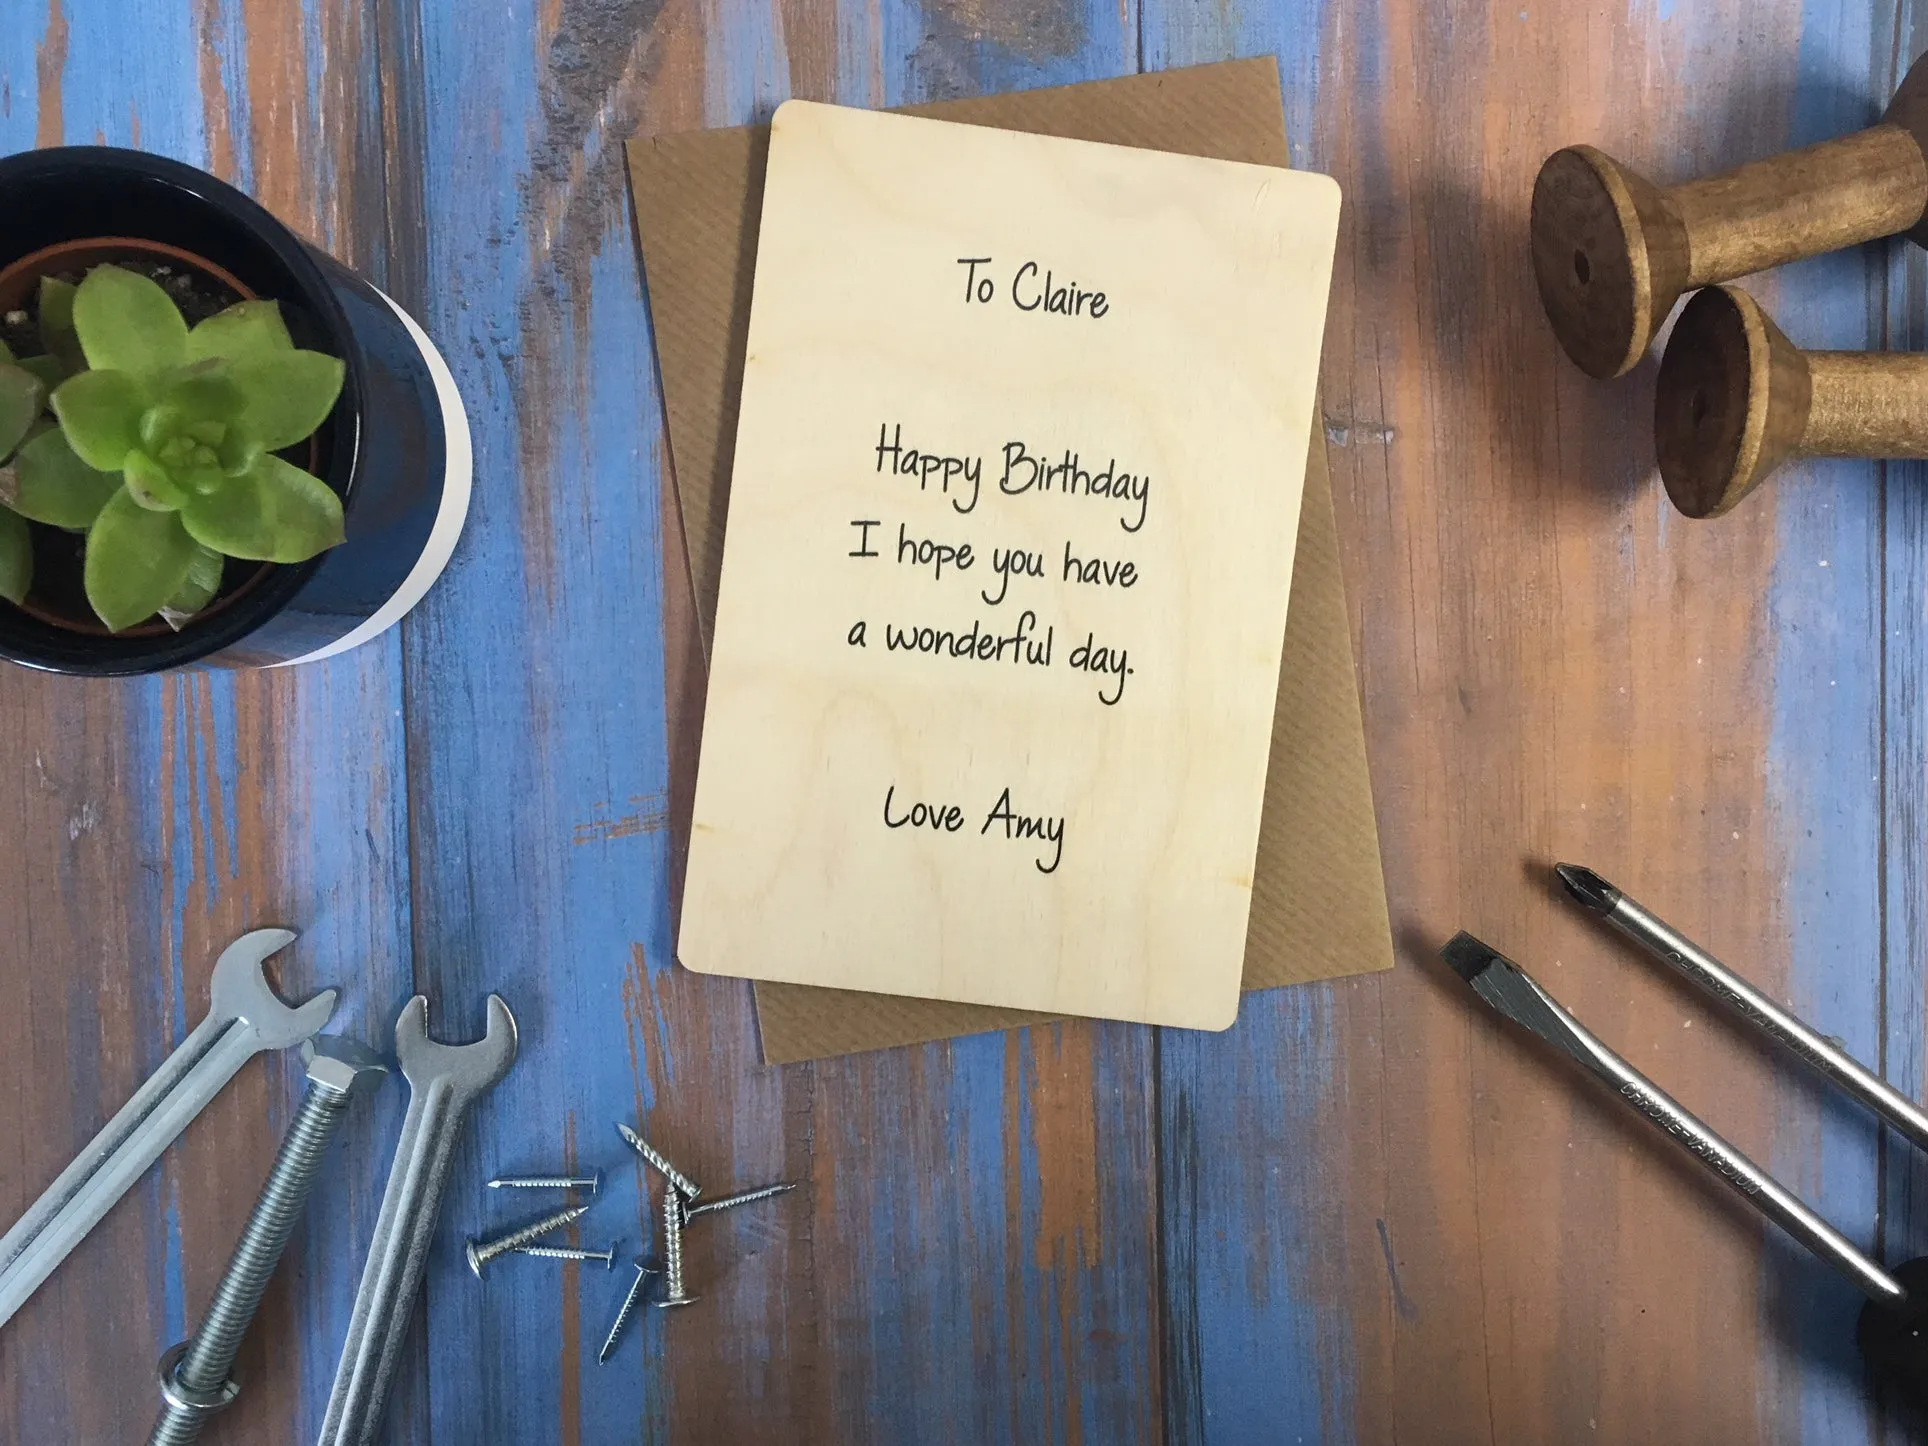 To Claire
Happy Birthday
I hope you have
a wonderful day.
Love Amy
CHROME-VANADIUM
CHROME-VANADIUM